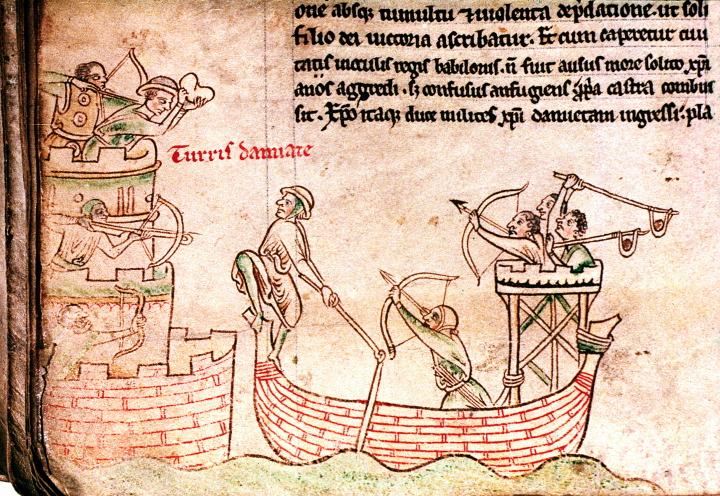 one absq; tumultu ⁊ uiolenta dep̄datione. ut soli
filio dei uictoria ascribatur. Et cum caperetur ciui
tatis in oculis regis babilonis. n̄ fuit ausus more solito xp̄i
anos aggredi. sꝫ confusus aufugiens castra combus
sit. Xp̄o itaq; duce milites xp̄i damietam ingressi. pla
Turris damiate